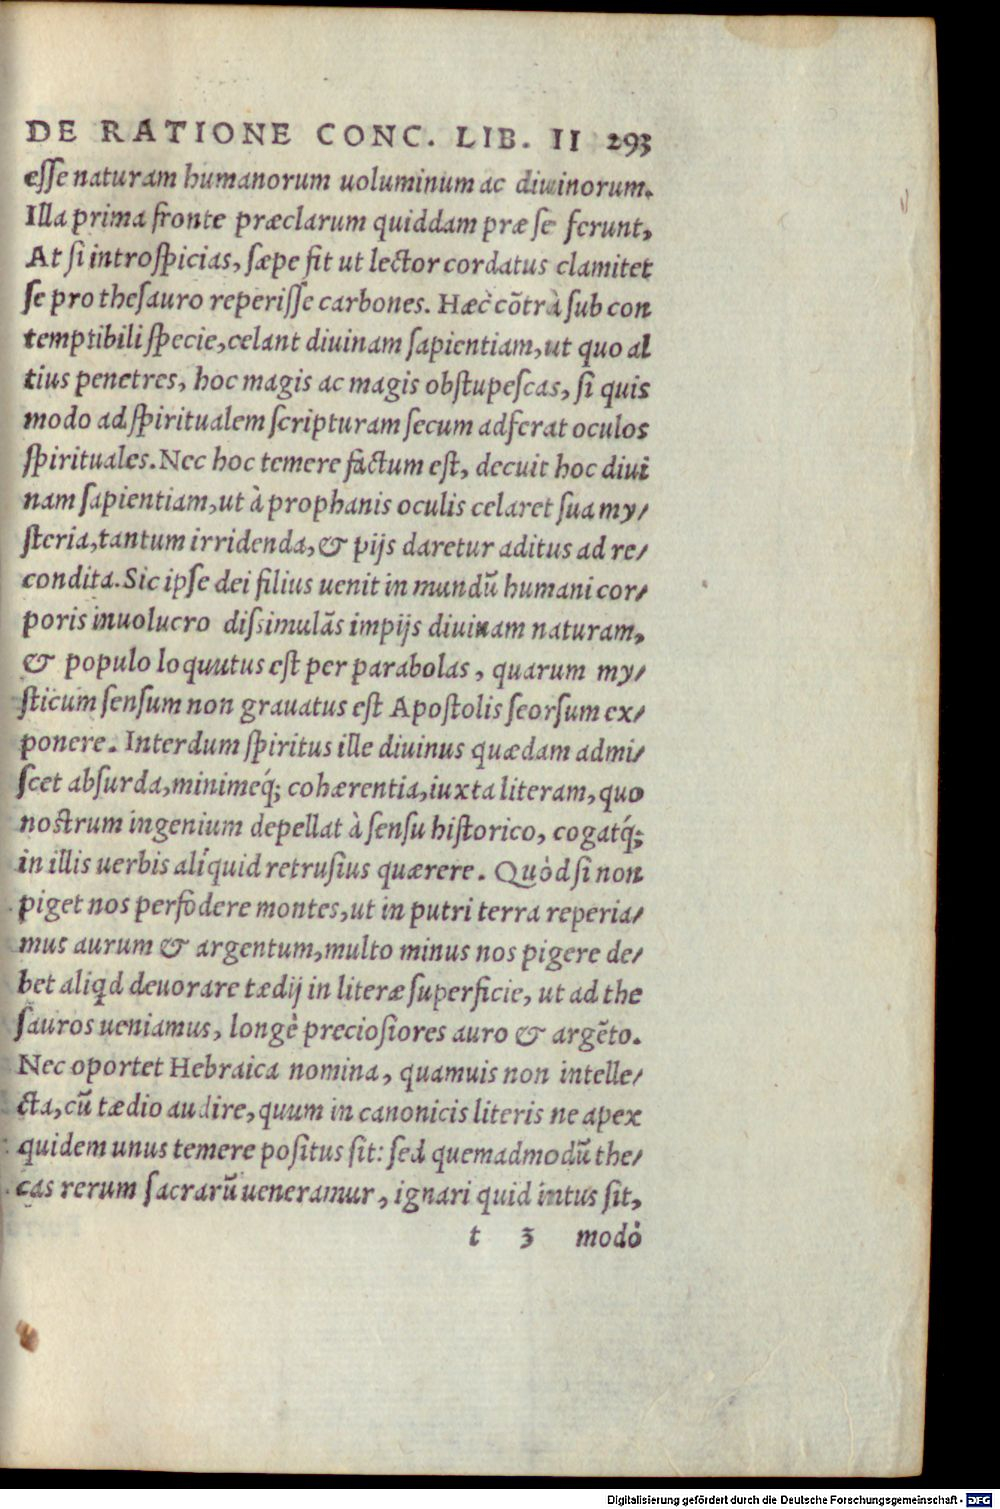 DE RATIONE CONC. LIB. II 293
esse naturam humanorum uoluminum ac diuinorum.
Illa prima fronte præclarum quiddam præ se ferunt,
At si introspicias, sæpe fit ut lector cordatus clamitet
se pro thesauro reperisse carbones. Hæc cõtrà sub con
temptibili specie, celant diuinam sapientiam, ut quo al
tius penetres, hoc magis ac magis obstupescas, si quis
modo ad spiritualem scripturam secum adferat oculos
spirituales. Nec hoc temere factum est, decuit hoc diui
nam sapientiam, ut à prophanis oculis celaret sua my/
steria, tantum irridenda, & pijs daretur aditus ad re/
condita. Sic ipse dei filius uenit in mundũ humani cor/
poris inuolucro dissimulãs impijs diuinam naturam,
& populo loquutus est per parabolas, quarum my/
sticum sensum non grauatus est Apostolis seorsum ex/
ponere. Interdum spiritus ille diuinus quædam admi/
scet absurda, minimeq́; cohærentia, iuxta literam, quo
nostrum ingenium depellat à sensu historico, cogatq́;
in illis uerbis alíquid retrusius quærere. Quòd si non
piget nos perfodere montes, ut in putri terra reperia/
mus aurum & argentum, multo minus nos pigere de/
bet aliqd deuorare tædij in literæ superficie, ut ad the
sauros ueniamus, longè preciosiores auro & argẽto.
Nec oportet Hebraica nomina, quamuis non intelle/
cta, cũ tædio audire, quum in canonicis literis ne apex
quidem unus temere positus sit: sed quemadmodũ the/
cas rerum sacrarũ ueneramur, ignari quid intus sit,
t 3 modò
Digitalisierung gefördert durch die Deutsche Forschungsgemeinschaft - DFG